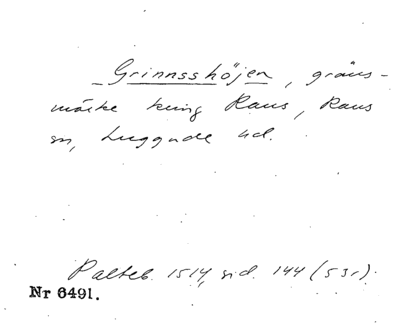 Grinnsshöjen, gräns-
märke kring Raus, Raus
sn, Luggude hd.
Palteb. 1514, sid. 144 (53r).
Nr 6491.